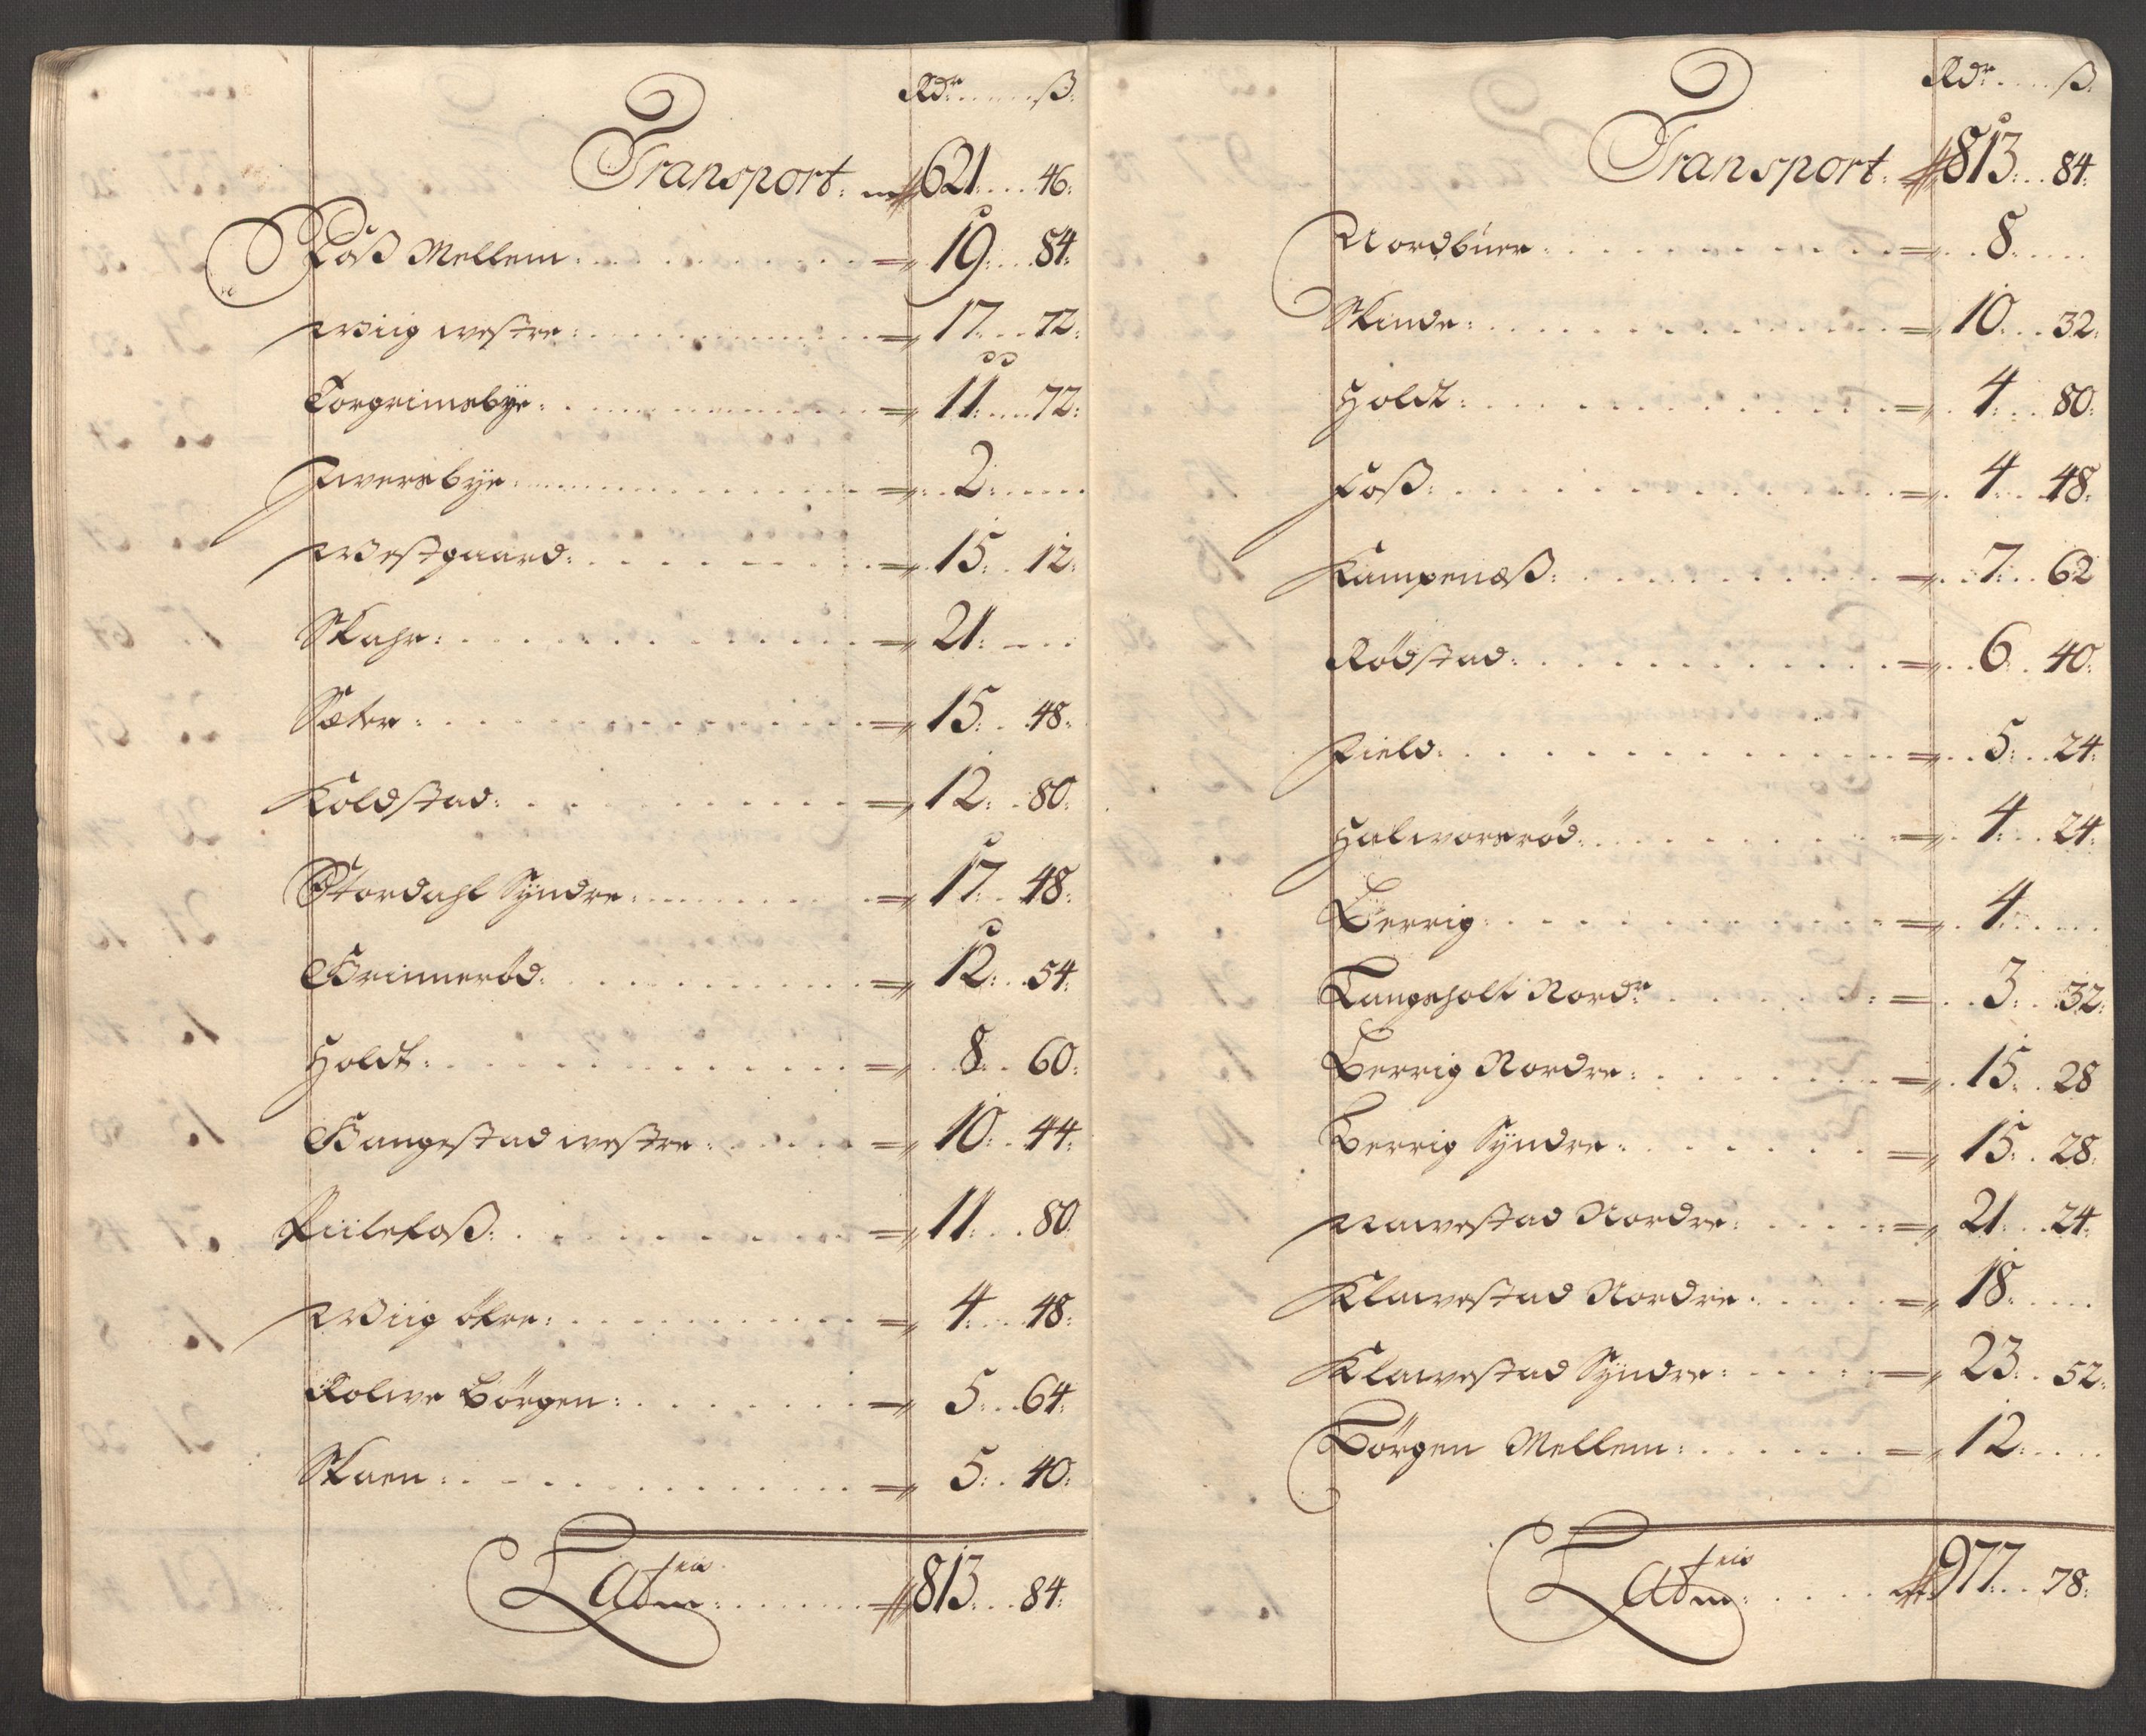 Rdr. ß.
Transport. 621. 46.
Foß Mellem. 19. 84.
Wiig westre. 17. 72.
Torgrimsbye. 11. 72.
Iwersbye. 2.
Westgaard. 15. 12.
Skahr. 21.
Sæter. 15. 48.
Koldstad. 12. 80.
Stordahl Syndre. 17. 48.
Grimmerød. 12. 54.
Holdt. 8. 60.
Gangestad westre. 10. 44.
Piilefoß. 11. 80.
Wiig øfre. 4. 48.
Rolwe Børgen. 5. 64.
Skaen. 5. 40.
Latm 813. 84.
Rdr. ß.
Transport. 813. 84.
Nordbuer. 8.
Skinde. 10. 32.
Holdt. 4. 80.
Foß. 4. 48.
Kampenæß. 7. 62
Rødstad. 6. 40.
Field. 5. 24.
Halworsrød. 4. 24.
Berrig. 4.
Tangeholt Nordr 3. 32.
Berrig Nordre. 15. 28
Berrig Syndre. 15. 28.
Nawestad Nordre. 21. 24.
Klawestad Nordre. 18.
Klawestad Syndre. 23. 52.
Børgen Mellem. 12.
Latm 977. 78.